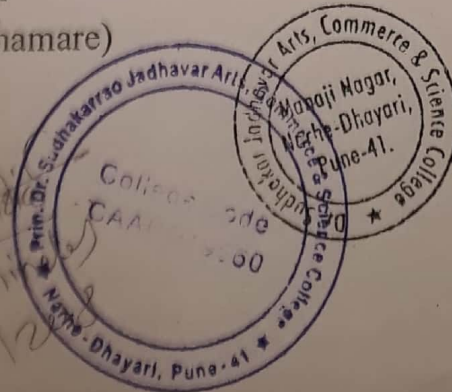 hamare)
Prin. Dr. Sudhakarrao Jadhavar Arts, Commerce & Science College
★ Narhe-Dhayari, Pune-41 ★
College Code
CAA
Sudhakar Jadhavar Arts, Commerce & Science College ★
Manaji Nagar,
Narhe-Dhayari,
Pune-41.